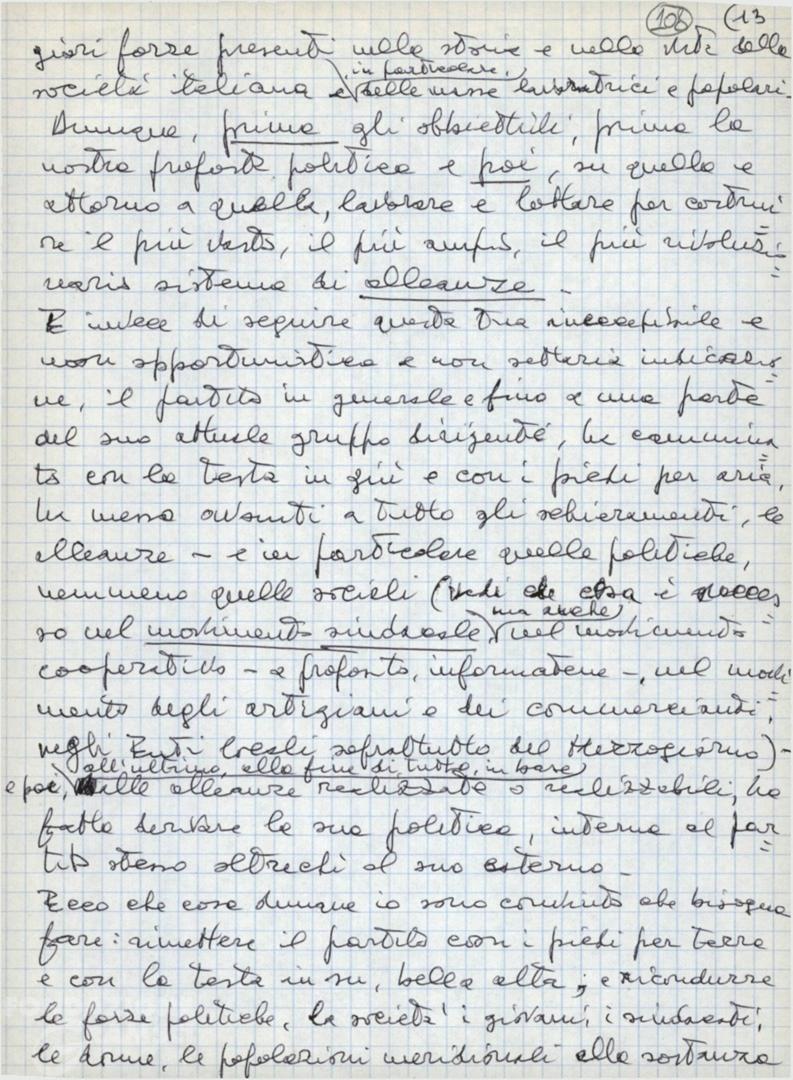 108 (13
giori forze presenti nella storia e nella vita della
società italiana e, in particolare, delle masse lavoratrici e popolari.
Dunque, prima gli obbiettivi, prima la
nostra proposta politica e poi, su quella e
attorno a quella, lavorare e lottare per costrui
re il più vasto, il più ampio, il più rivoluzio
nario sistema di alleanze.
E invece di seguire questa tua ineccepibile e
non opportunistica e non settaria indicazio
ne, il partito in generale e fino a una parte
del suo attuale gruppo dirigente, ha cammina
to con la testa in giù e con i piedi per aria,
ha messo avanti a tutto gli schieramenti, le
alleanze – e in particolare quelle politiche,
nemmeno quelle sociali (vedi che cosa è succes
so nel movimento sindacale, ma anche nel movimento
cooperativo – a proposito, informatene –, nel movi
mento degli artigiani e dei commercianti,
negli Enti locali soprattutto del Mezzogiorno) –
e poi, all'ultimo, alla fine di tutto, in base
alle alleanze realizzate o realizzabili, ha
fatto derivare la sua politica, interna al par
tito stesso oltreché al suo esterno –
Ecco che cosa dunque io sono convinto che bisogna
fare: rimettere il partito con i piedi per terra
e con la testa in su, bella alta; e ricondurre
le forze politiche, la società, i giovani, i sindacati,
le donne, le popolazioni meridionali alla sostanza